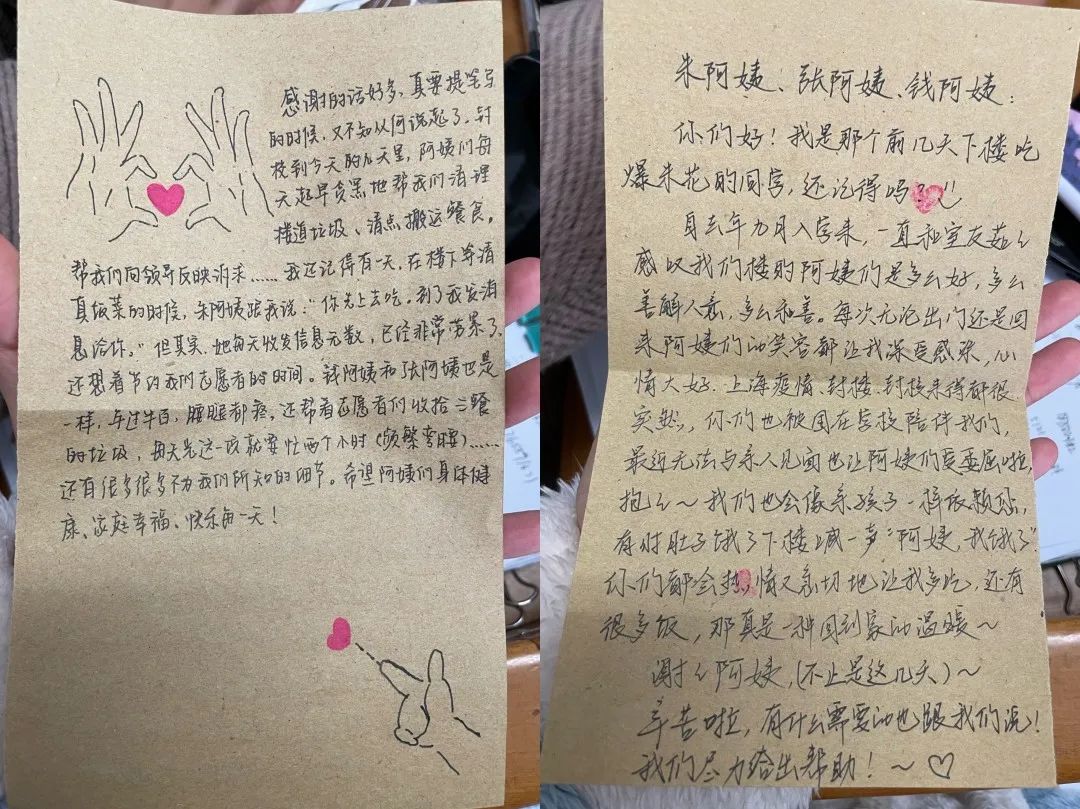 感谢的话好多,真要提笔写
的时候,又不知从何说起了。封
校到今天的几天里,阿姨们每
天起早贪黑地帮我们清理
楼道垃圾、清点搬运餐食。
帮我们向领导反映诉求……我还记得有一天,在楼下等清
真饭菜的时候,朱阿姨跟我说:“你先上去吃。到了我发消
息给你。”但其实,她每天收发信息无数,已经非常劳累了,
还想着节约我们志愿者的时间。钱阿姨和张阿姨也是
一样,年过半百,腰腿都疼。还帮着志愿者们收拾三餐
的垃圾,每天光这一项就要忙两个小时(频繁弯腰)……
还有很多很多不为我们所知的细节。希望阿姨们身体健
康、家庭幸福、快乐每一天!
朱阿姨、张阿姨、钱阿姨:
你们好!我是那个前几天下楼吃
爆米花的同学 还记得吗?
自去年九月入学来,一直和室友茹々
感叹我们楼的阿姨们是多么好,多么
善解人意,多么和善。每次无论出门还是回
来阿姨们的笑容都让我深受感染,心
情大好.上海疫情、封楼、封校来得都很
突然,你们也被困在学校陪伴我们,
最近无法与亲人见面也让阿姨们受委屈啦,
抱々~我们也会像亲孩子一样依赖您,
有时肚子饿了下楼喊一声“阿姨,我饿了”
你们都会热情又亲切地让我多吃,还有
很多饭,那真是一种回到家的温暖~
谢々阿姨,(不止是这几天)~
辛苦啦,有什么需要的也跟我们说!
我们尽力给出帮助!~♡